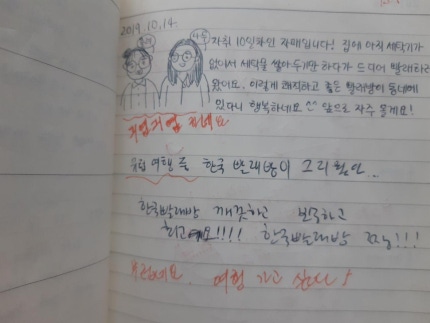 2019.10.14.
자취 10일차인 자매입니다! 집에 아직 세탁기가
없어서 세탁물을 쌓아두기만 하다가 드디어 빨래하러
왔어요. 이렇게 쾌적하고 좋은 빨래방이 동네에
있다니 행복하네요^^ 앞으로 자주 올게요!
귀엽귀엽
유럽 여행 중 한국 빨래방이 그리웠던...
한국빨래방 깨끗하고 친숙하고
최고예요!!!! 한국빨래방 짱!!!
부럽네요. 여행 가고 싶다